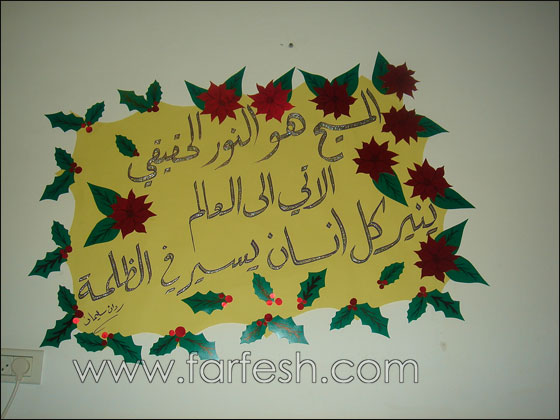 المسيح هو النور الحقيقي
الآتي الى العالم
ينير كل انسان يسير في الظلمة
www.farfesh.com